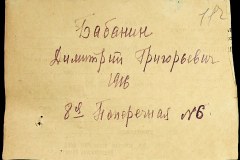 Бабанин
Димитрий Григорьевич
1916
8ая Поперечная №6